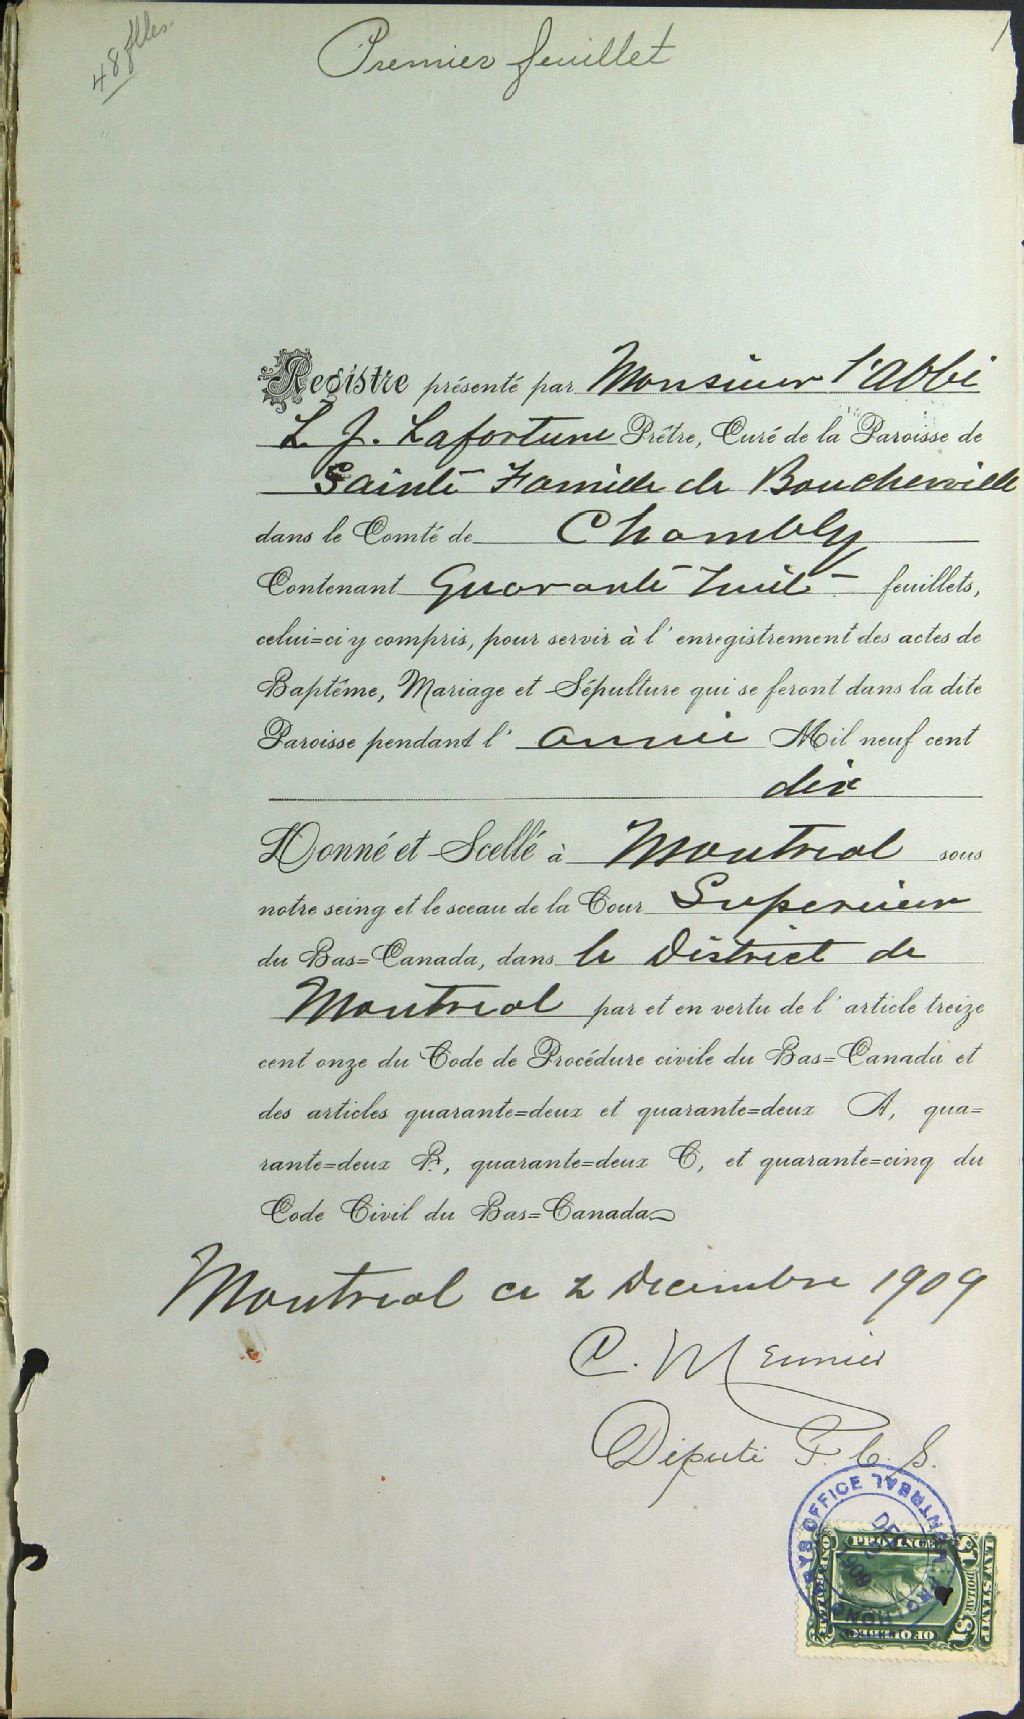 48 flles
Premier feuillet
1
Registre présenté par Monsieur l'Abbé
L. J. Lafortune Prêtre, Curé de la Paroisse de
Sainte Famille de Boucherville
dans le Comté de Chambly
Contenant Quarante huit feuillets,
celui=ci y compris, pour servir à l'enregistrement des actes de
Baptême, Mariage et Sépulture qui se feront dans la dite
Paroisse pendant l'année Mil neuf cent
dix
Donné et Scellé à Montreal sous
notre seing et le sceau de la Cour Superieur
du Bas=Canada, dans le District de
Montreal par et en vertu de l'article treize
cent onze du Code de Procédure civile du Bas=Canada et
des articles quarante=deux et quarante=deux A, qua=
rante=deux B, quarante=deux C, et quarante=cinq du
Code Civil du Bas=Canada
Montreal ce 2 Decembre 1909
C. Meunier
Député P. C. S.
PROTHONOTARYS OFFICE MONTREAL
DEC
1909
LAW STAMP
PROVINCE
OF QUEBEC
ONE DOLLAR
$1 DOLLAR $1